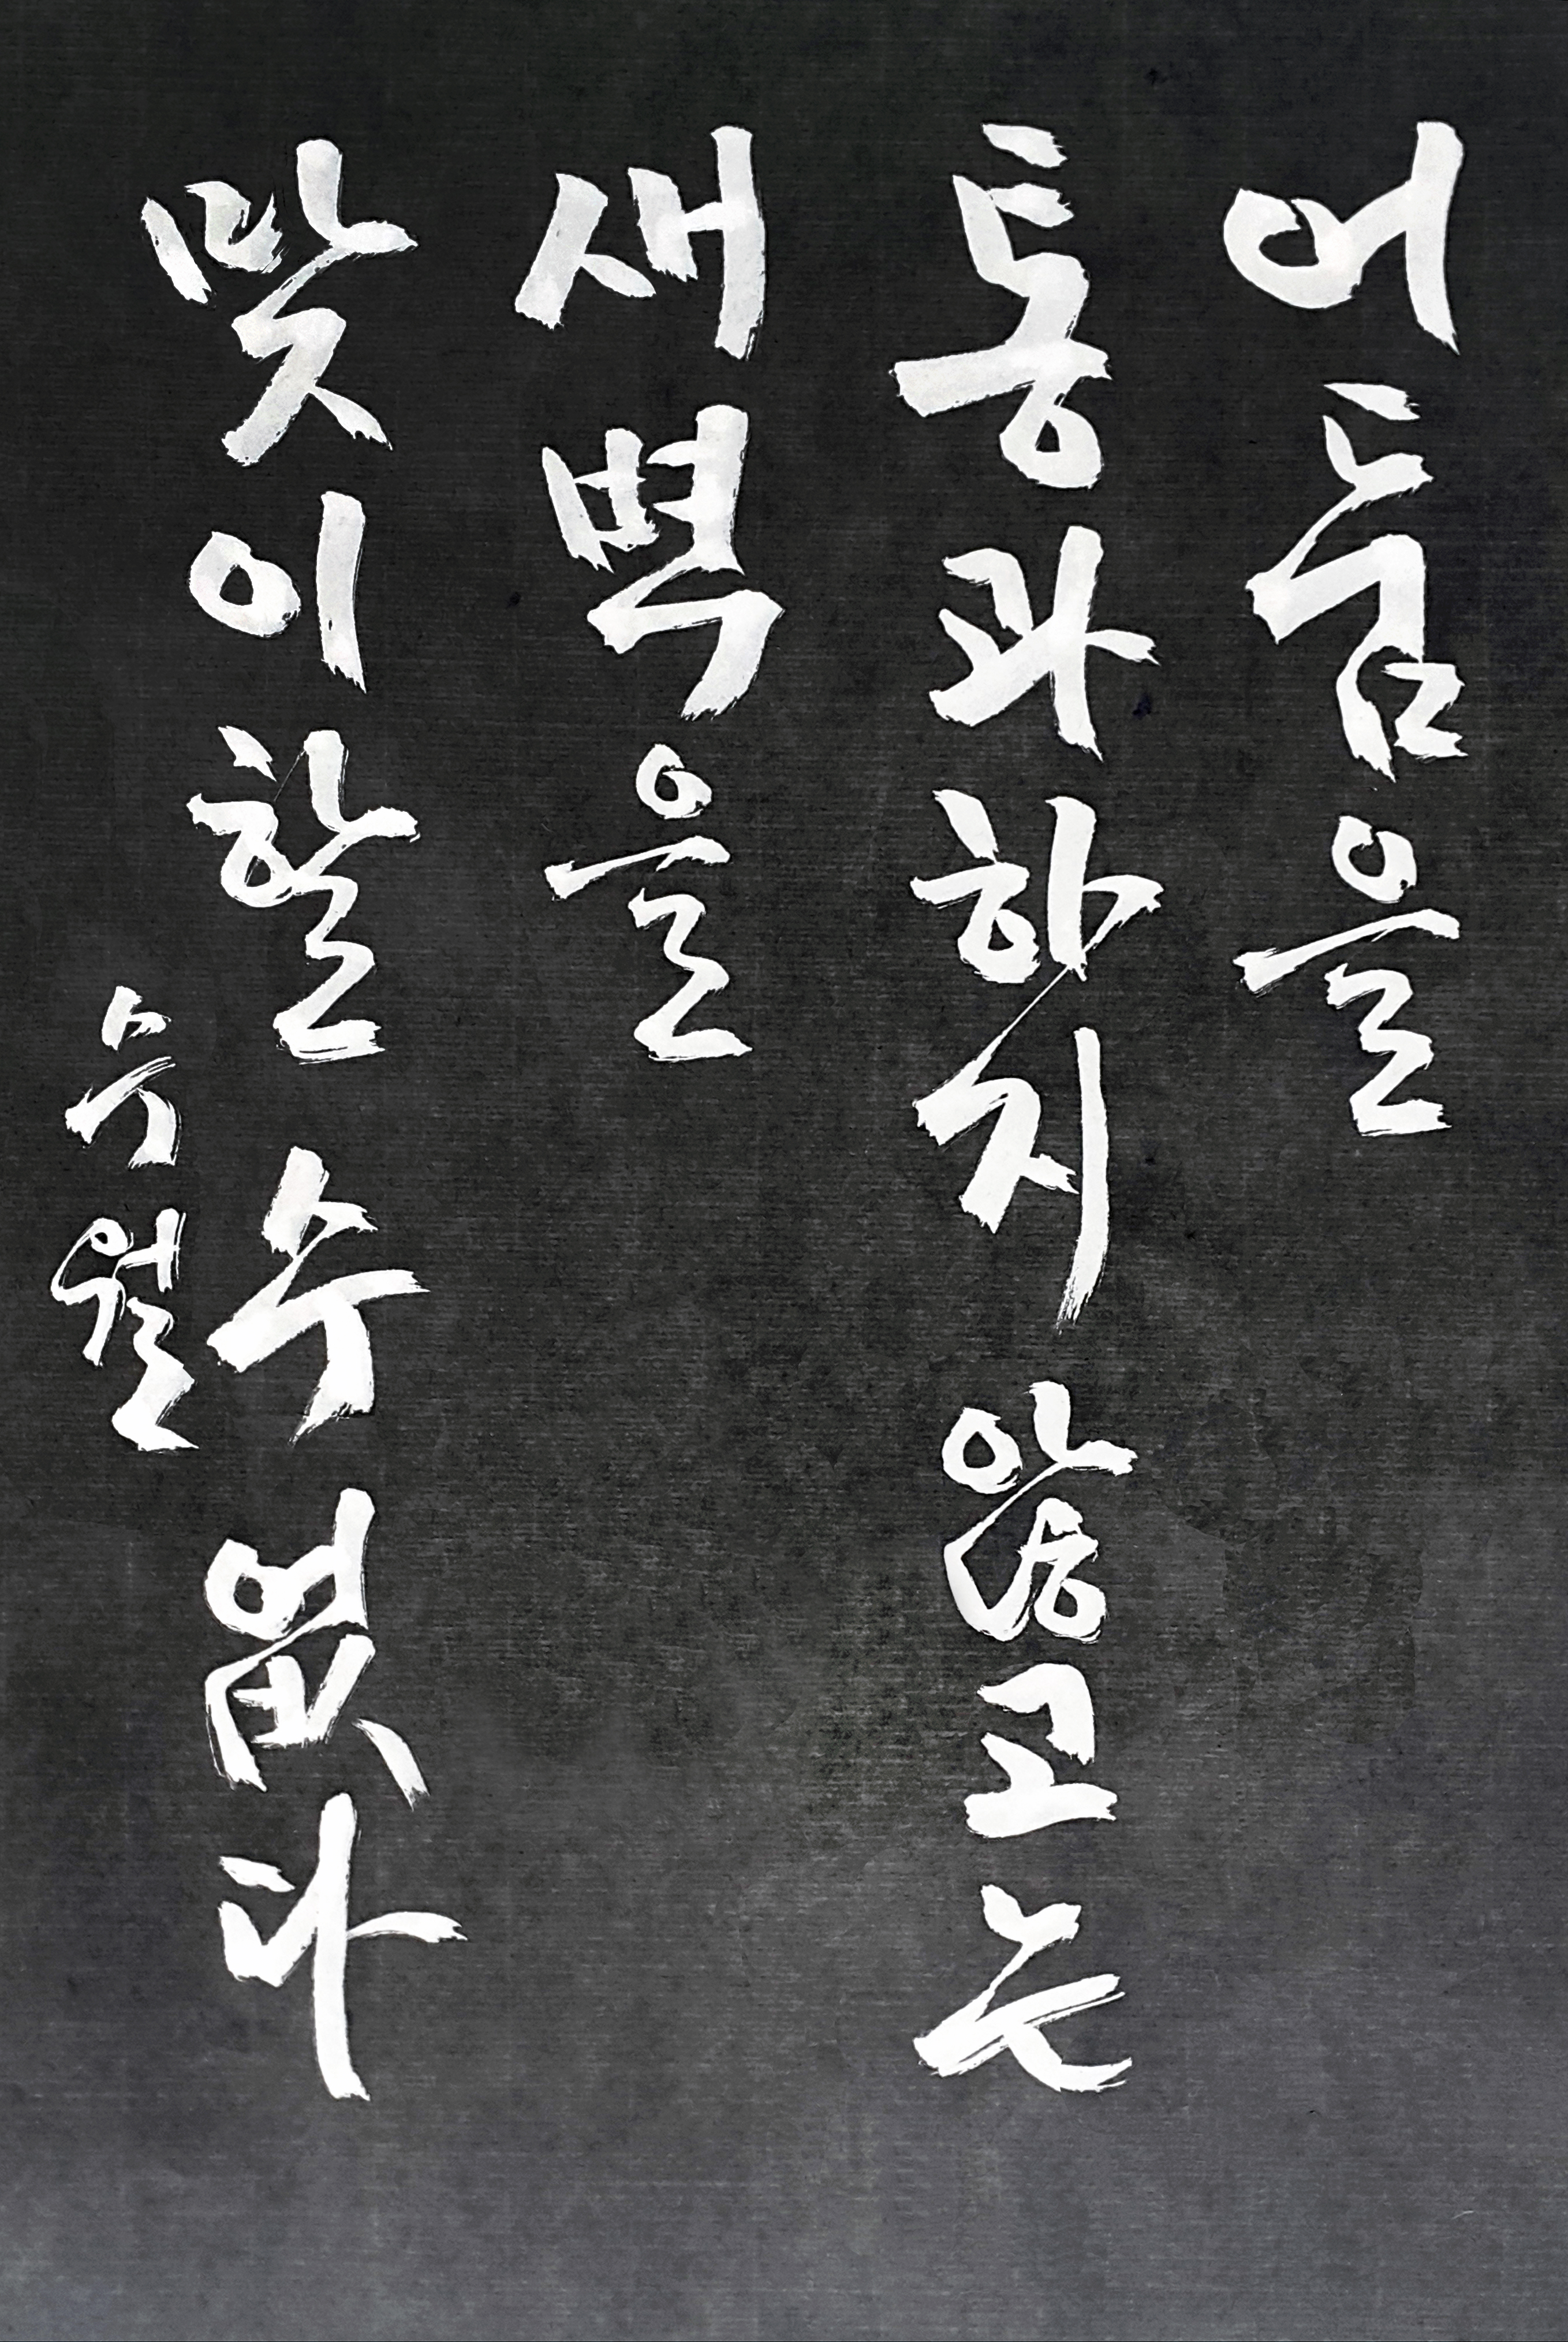 어둠을
통과하지 않고는
새벽을
맞이할 수 없다
수월